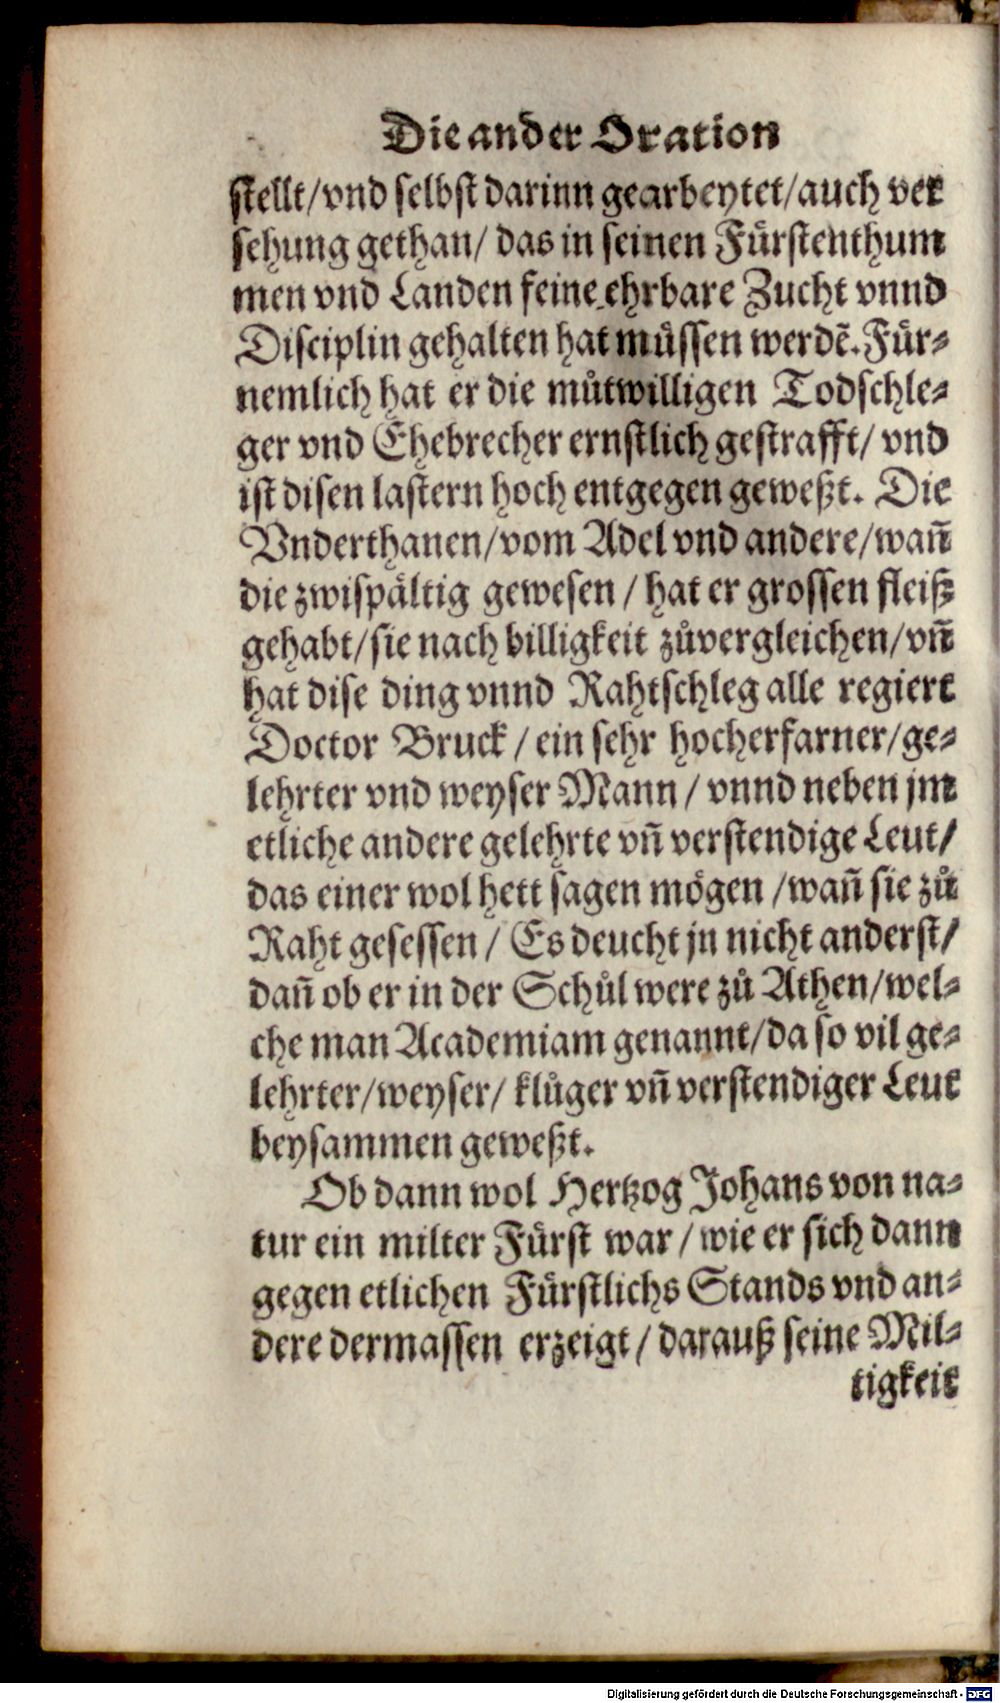 Die ander Oration
stellt/vnd selbst darinn gearbeytet/auch ver
sehung gethan/ das in seinen Fürstenthum
men vnd Landen feine ehrbare Zucht vnnd
Disciplin gehalten hat müssen werdẽ. Für⸗
nemlich hat er die můtwilligen Todschle⸗
ger vnd Ehebrecher ernstlich gestrafft/ vnd
ist disen lastern hoch entgegen geweßt. Die
Vnderthanen/vom Adel vnd andere/wañ
die zwispältig gewesen / hat er grossen fleiß
gehabt/sie nach billigkeit zůvergleichen/vñ
hat dise ding vnnd Rahtschleg alle regiert
Doctor Bruck / ein sehr hocherfarner/ge⸗
lehrter vnd weyser Mann / vnnd neben jm
etliche andere gelehrte vñ verstendige Leut/
das einer wol hett sagen mögen /wañ sie zů
Raht gesessen / Es deucht jn nicht anderst/
dañ ob er in der Schůl were zů Athen/wel⸗
che man Academiam genannt/da so vil ge⸗
lehrter/weyser/ klůger vñ verstendiger Leut
beysammen geweßt.
Ob dann wol Hertzog Johans von na⸗
tur ein milter Fürst war / wie er sich dann
gegen etlichen Fürstlichs Stands vnd an⸗
dere dermassen erzeigt / darauß seine Mil⸗
tigkeit
Digitalisierung gefördert durch die Deutsche Forschungsgemeinschaft - DFG